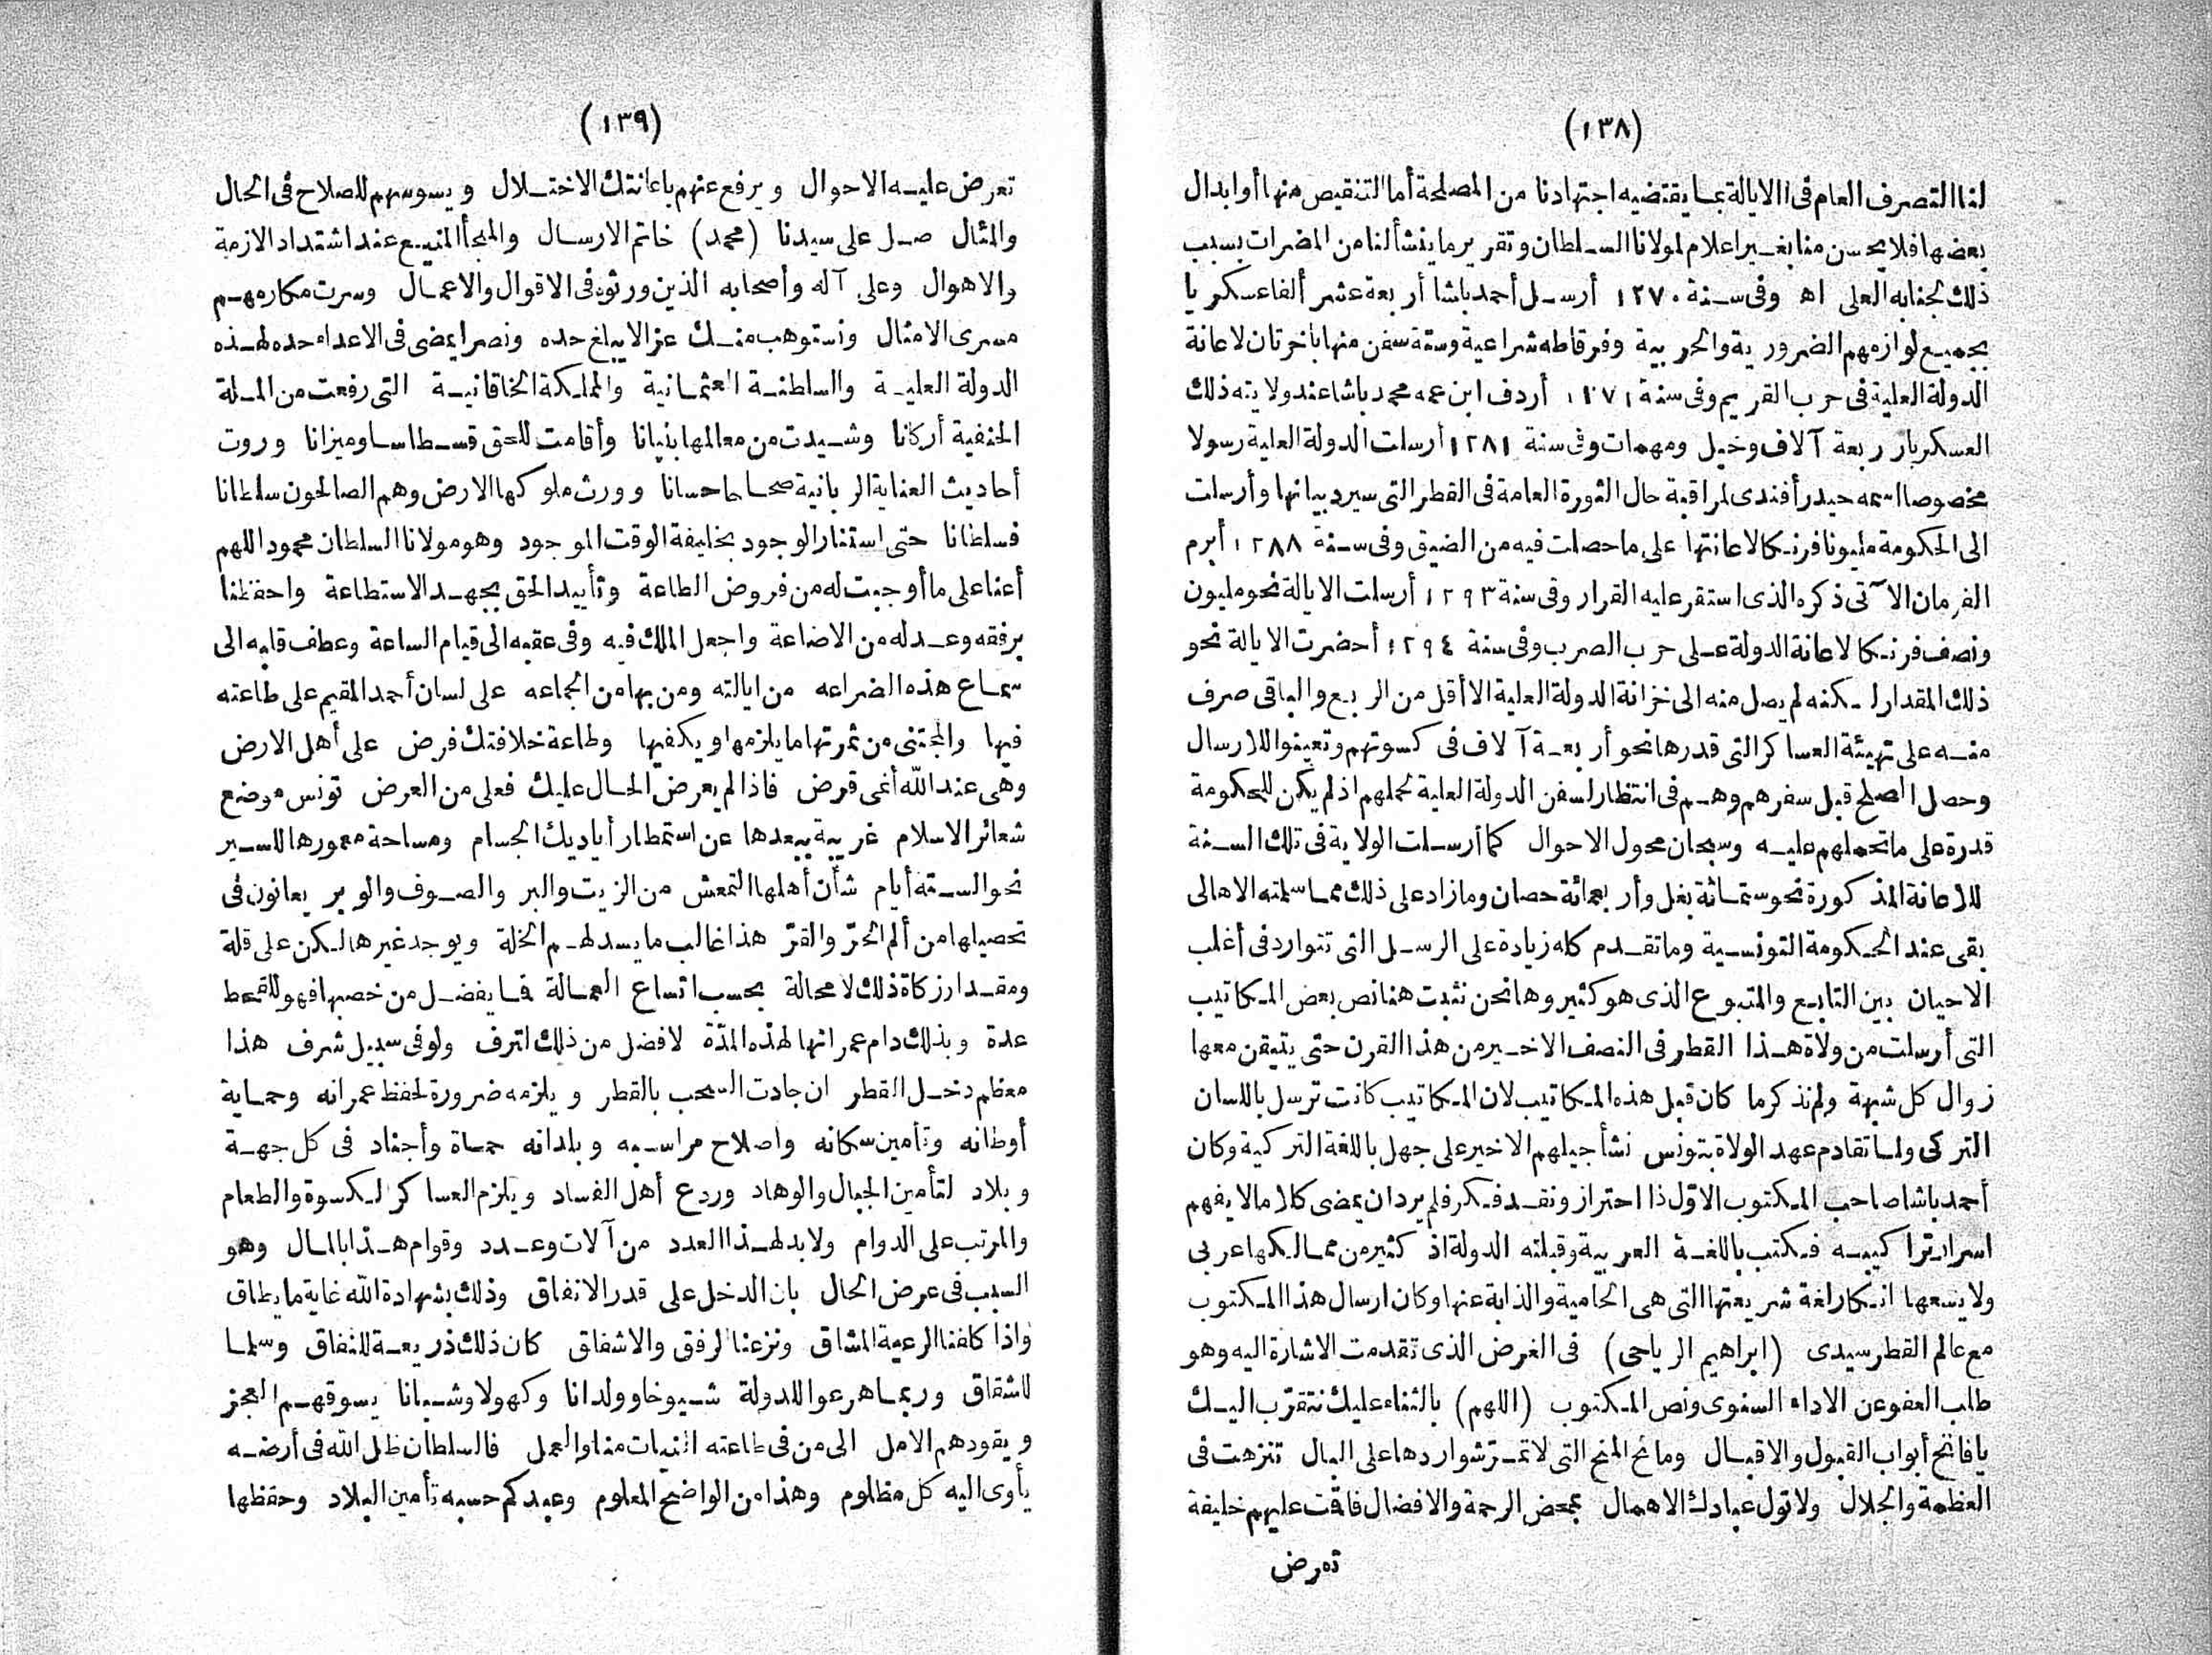 (١٣٨)
لنا التصرف العام فى الايالة بما يقتضيه اجتهادنا من المصلحة أما التنقيص منها أو ابدال
بعضها فلا يحسن منا بغير اعلام لمولانا السلطان وتقرير ما ينشأ لنا من المضرات بسبب
ذلك لجنابه العلى اه وفى سنة ١٢٧٠ أرسل أحمد باشا أربعة عشر ألفا عسكريا
بجميع لوازمهم الضرورية والحربية وفرقاطه شراعية وستة سفن منها باخرتان لاعانة
الدولة العلية فى حرب القريم وفى سنة ١٢٧١ أردف ابن عمه محمد باشا عند ولايته ذلك
العسكر بار ربعة آلاف وخيل ومهمات وفى سنة ١٢٨١ أرسلت الدولة العلية رسولا
مخصوصا اسمه حيدر أفندى لمراقبة حال الثورة العامة فى القطر التى سيرد بيانها وأرسلت
الى الحكومة مليونا فرنكا لاعانتها على ما حصلت فيه من الضيق وفى سنة ١٢٨٨ أبرم
الفرمان الآتى ذكره الذى استقر عليه القرار وفى سنة ١٢٩٣ أرسلت الايالة نحو مليون
ونصف فرنكا لاعانة الدولة على حرب الصرب وفى سنة ١٢٩٤ أحضرت الايالة نحو
ذلك المقدار لكنه لم يصل منه الى خزانة الدولة العلية الا أقل من الربع والباقى صرف
منه على تهيئة العساكر التى قدرها نحو أربعة آلاف فى كسوتهم وتعينوا للارسال
وحصل الصلح قبل سفرهم وهم فى انتظار لسفن الدولة العلية لحملهم اذ لم يكن للحكومة
قدرة على ما تحملهم عليه وسبحان محول الاحوال كما أرسلت الولاية فى تلك السنة
للاعانة المذكورة نحو ستمائة بغل وأربعمائة حصان وما زاد على ذلك مما سلمته الاهالى
بقى عند الحكومة التونسية وما تقدم كله زيادة على الرسل التى تتوارد فى أغلب
الاحيان بين التابع والمتبوع الذى هو كثير وها نحن نثبت هنا نص بعض المكاتيب
التى أرسلت من ولاة هذا القطر فى النصف الاخير من هذا القرن حتى يتيقن معها
زوال كل شبهة ولم نذكر ما كان قبل هذه المكاتيب لان المكاتيب كانت ترسل باللسان
التركى ولما تقادم عهد الولاة بتونس نشأ جيلهم الاخير على جهل باللغة التركية وكان
أحمد باشا صاحب المكتوب الاوّل ذا احتراز ونقد فكر فلم يرد ان يمضى كلاما لا يفهم
اسرار تراكيبه فكتب باللغة العربية وقبلته الدولة اذ كثير من ممالكها عربى
ولا يسعها انكار لغة شريعتها التى هى الحامية والذابة عنها وكان ارسال هذا المكتوب
مع عالم القطر سيدى (ابراهيم الرياحى) فى الغرض الذى تقدمت الاشارة اليه وهو
طلب العفو عن الاداء السنوى ونص المكتوب (اللهم) بالثناء عليك نتقرّب اليك
يا فاتح أبواب القبول والاقبال ومانح المنح التى لا تمر شواردها على البال تنزهت فى
العظمة والجلال ولا تول عبادك الاهمال بمحض الرحمة والافضال فاقت عليهم خليفة
تعرض
(١٣٩)
تعرض عليه الاحوال ويرفع عنهم باعانتك الاختلال ويسوسهم للصلاح فى الحال
والمثال صل على سيدنا (محمد) خاتم الارسال والملجأ المنيع عند اشتداد الازمة
والاهوال وعلى آله وأصحابه الذين ورثوه فى الاقوال والاعمال وسرت مكارمهم
مسرى الامثال ونستوهب منك عزا لا يبلغ حده ونصرا يمضى فى الاعداء حده لهذه
الدولة العلية والسلطنة العثمانية والمملكة الخاقانية التى رفعت من الملة
الحنفية أركانا وشيدت من معالمها بنيانا وأقامت للحق قسطاسا وميزانا وروت
أحاديث العناية الربانية صحاحا حسانا وورث ملوكها الارض وهم الصالحون سلطانا
فسلطانا حتى استنار الوجود بخليفة الوقت الموجود وهو مولانا السلطان محمود اللهم
أعنا على ما أوجبت له من فروض الطاعة وتأييد الحق بجهد الاستطاعة واحفظنا
برفقه وعدله من الاضاعة واجعل الملك فيه وفى عقبه الى قيام الساعة وعطف قلبه الى
سماع هذه الضراعه من ايالته ومن بها من الجماعه على لسان أحمد المقيم على طاعته
فيها والمجتنى من ثمرتها ما يلزمها ويكفيها وطاعة خلافتك فرض على أهل الارض
وهى عند الله أنمى قرض فاذا لم يعرض الحال عليك فعلى من العرض تونس موضع
شعائر الاسلام غريبة ببعدها عن استمطار أياديك الجسام ومساحة معمورها للسير
نحو الستة أيام شأن أهلها التمعش من الزيت والبر والصوف والوبر يعانون فى
تحصيلها من ألم الحرّ والقرّ هذا غالب ما يسد لهم الخلة ويوجد غيرها لكن على قلة
ومقدار زكاة ذلك لا محالة بحسب اتساع العمالة فما يفضل من خصبها فهو للقحط
عدة وبذلك دام عمرانها لهذه المدّة لا فضل من ذلك لترف ولو فى سبيل شرف هذا
معظم دخل القطر ان جادت السحب بالقطر ويلزمه ضرورة لحفظ عمرانه وحماية
أوطانه وتأمين سكانه واصلاح مراسيه وبلدانه حماة وأجناد فى كل جهة
وبلاد لتأمين الجبال والوهاد وردع أهل الفساد ويلزم العساكر لكسوة والطعام
والمرتب على الدوام ولا بد لهذا العدد من آلات وعدد وقوام هذا بالمال وهو
السبب فى عرض الحال بان الدخل على قدر الانفاق وذلك بشهادة الله غاية ما يطاق
واذا كلفنا الرعية المشاق ونزعنا لرفق والاشفاق كان ذلك ذريعة للنفاق وسلما
للشقاق وربما هرعوا للدولة شيوخا وولدانا وكهولا وشبانا يسوقهم العجز
ويقودهم الامل الى من فى طاعته النيات منا والعمل فالسلطان ظل الله فى أرضه
يأوى اليه كل مظلوم وهذا من الواضح المعلوم وعبدكم حسبه تأمين البلاد وحفظها